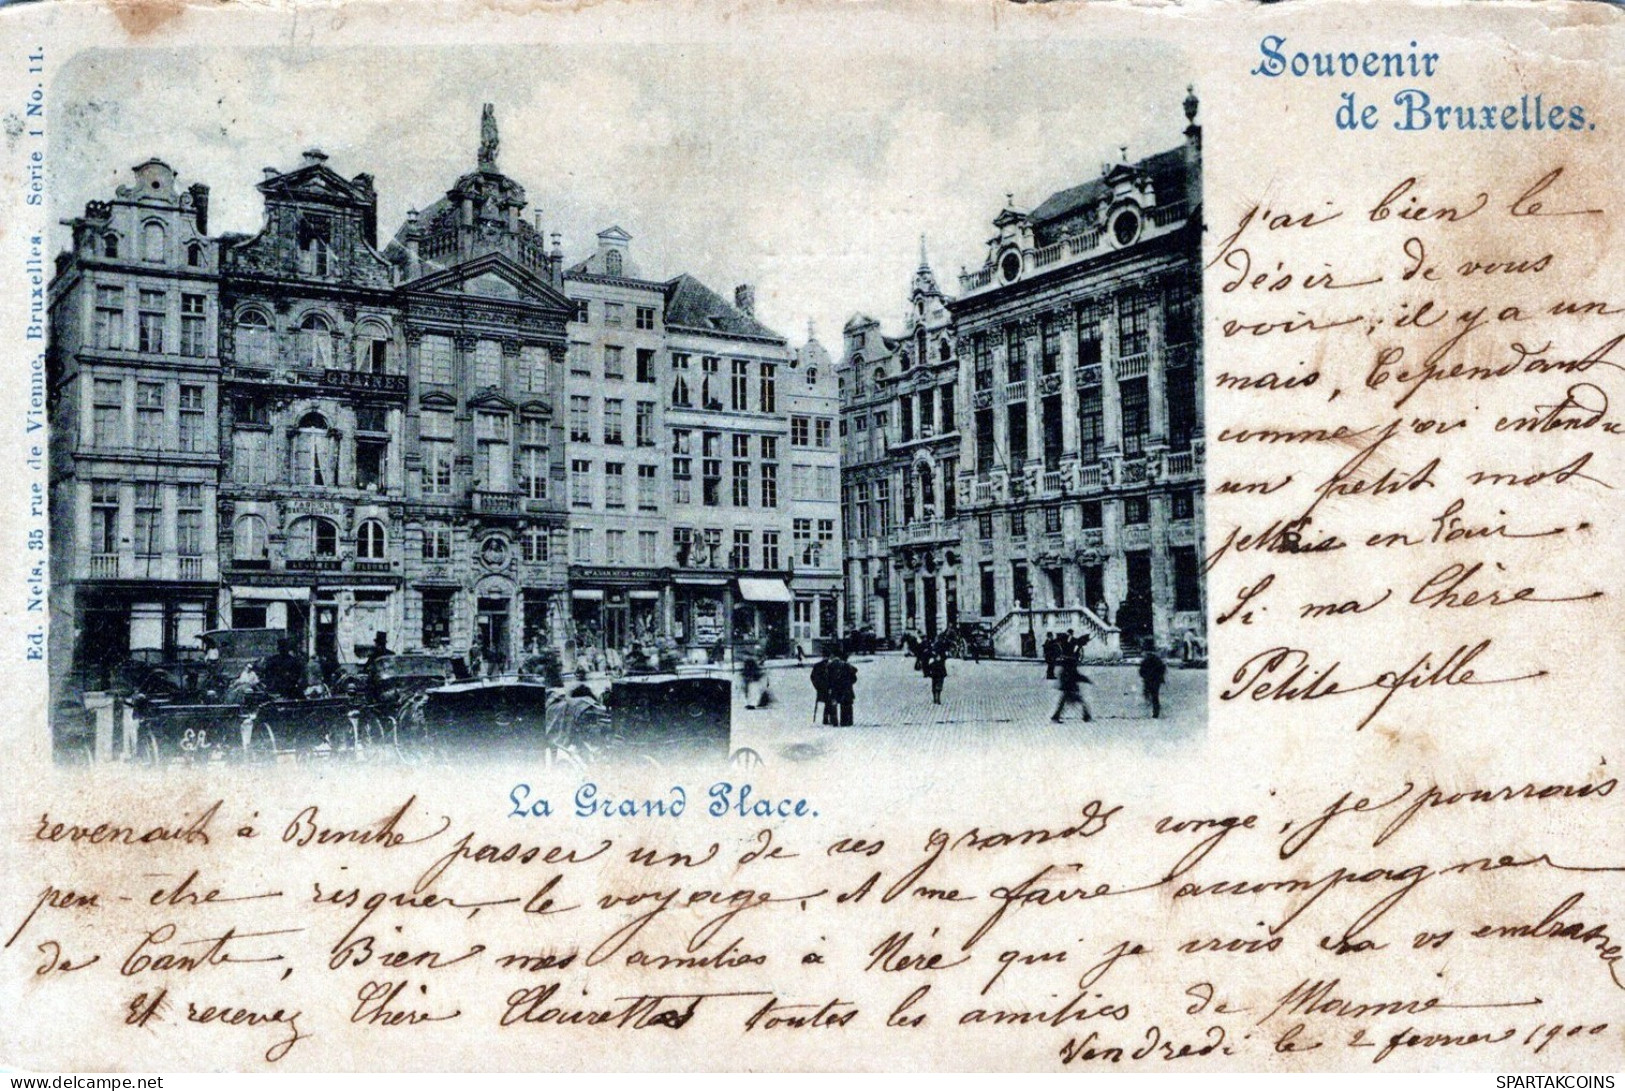 Souvenir
de Bruxelles.
Ed. Nels, 35 rue de Vienne, Bruxelles. Serie 1 No. 11.
GRAINES
LA Grand Place.
j'ai bien le
désir de vous
voir, il y a un
mais, Cependant
comme j'ai entendu
un petit mot
jetté en l'air
Si ma Chère
Petite fille
revenait à Binche passer un de ces grands congé, je pourrais
peu-être risquer, le voyage, et me faire accompagner
de Tante, Bien mes amitiés à Méré qui je crois va vs embrasser
Et recevez Chère Clairette toutes les amitiés de Mamie
Vendredi le 2 fevrier 1900
SPARTAKCOINS